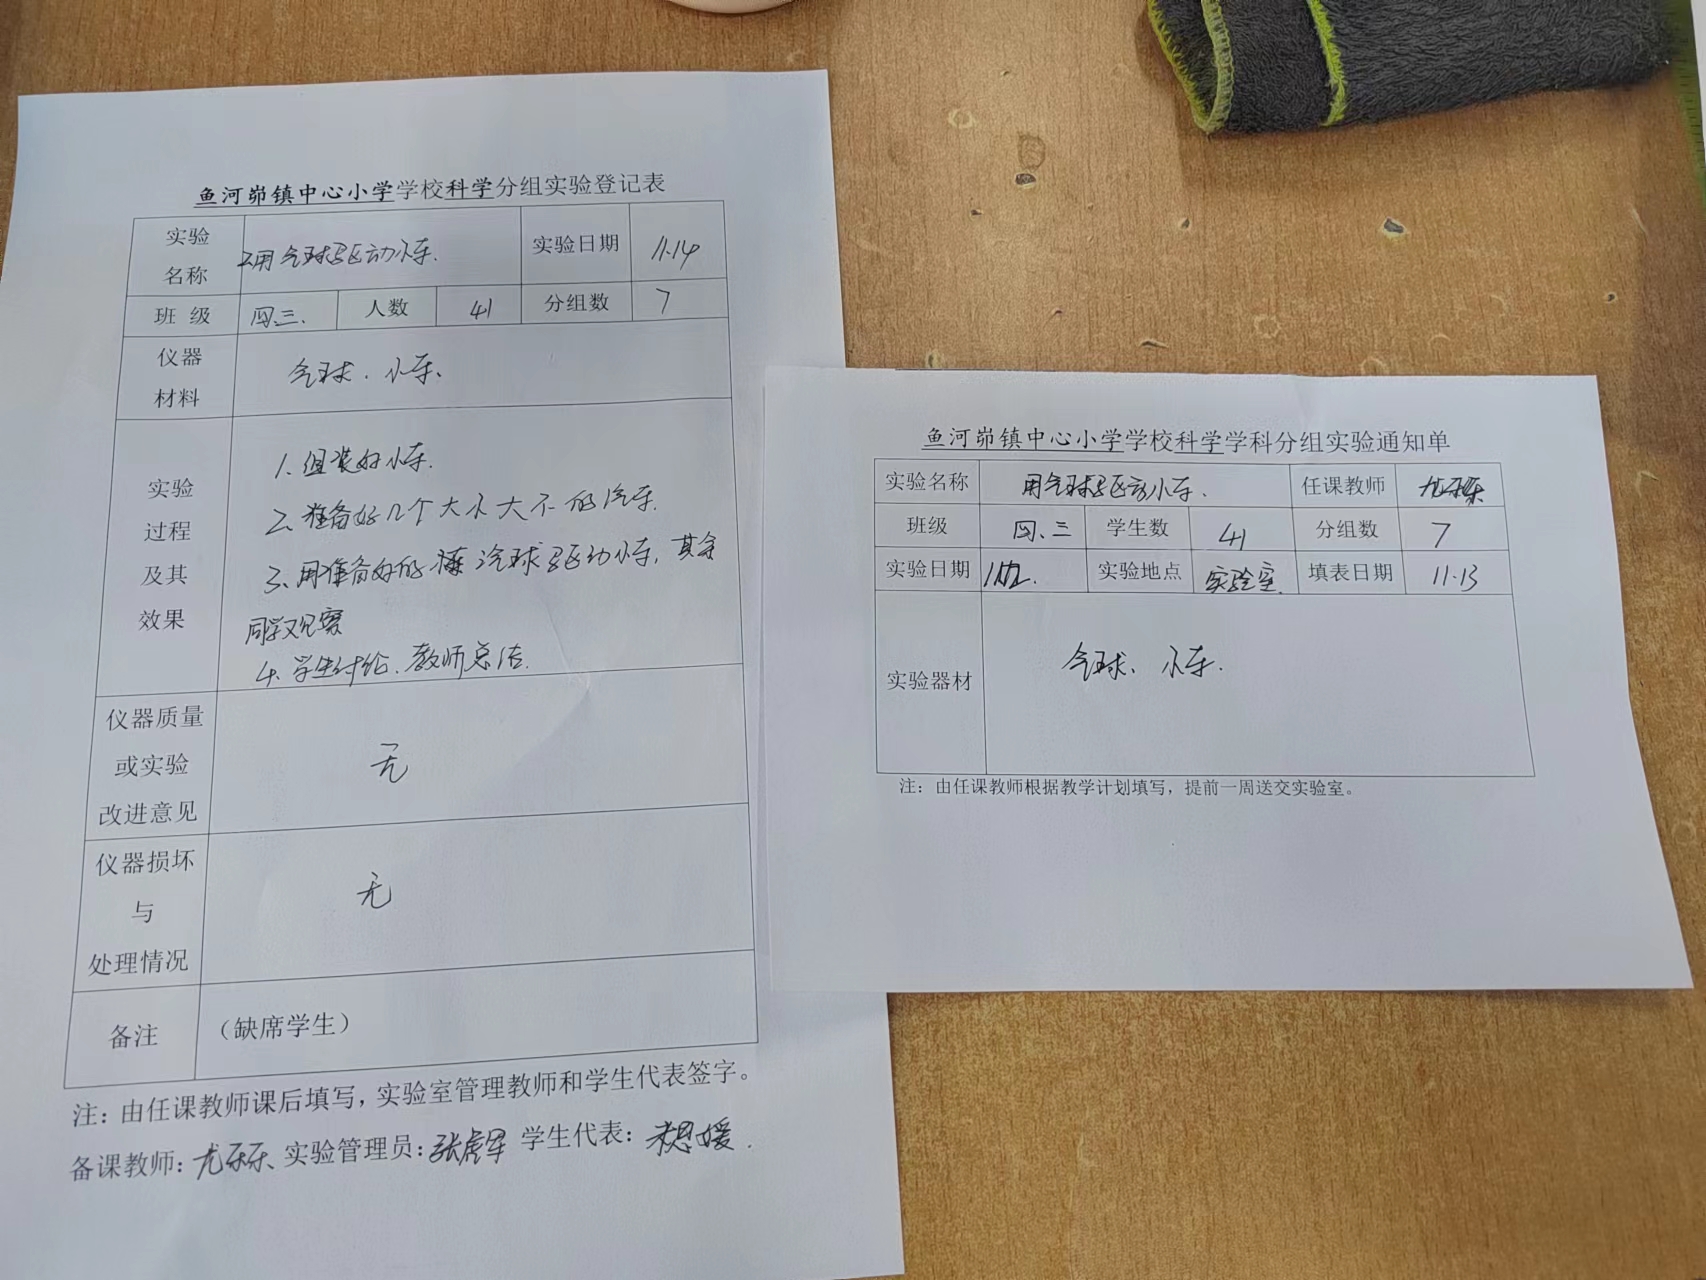 鱼河峁镇中心小学学校科学分组实验登记表
实验名称 用气球驱动小车. 实验日期 11.14
班 级 四.三. 人数 41 分组数 7
仪器材料 气球. 小车.
实验过程及其效果
1. 组装好小车.
2. 准备好几个大小大不的汽车.
3. 用准备好的 汽球驱动小车, 其余
同学观察
4. 学生讨论. 教师总结.
仪器质量或实验改进意见 无
仪器损坏与处理情况 无
备注 （缺席学生）
注：由任课教师课后填写，实验室管理教师和学生代表签字。
备课教师: 尤乐乐 实验管理员: 张 军 学生代表: 思媛.
鱼河峁镇中心小学学校科学学科分组实验通知单
实验名称 用气球驱动小车. 任课教师 尤乐乐
班级 四.三 学生数 41 分组数 7
实验日期 实验地点 实验室. 填表日期 11.13
实验器材 气球. 小车.
注：由任课教师根据教学计划填写，提前一周送交实验室。